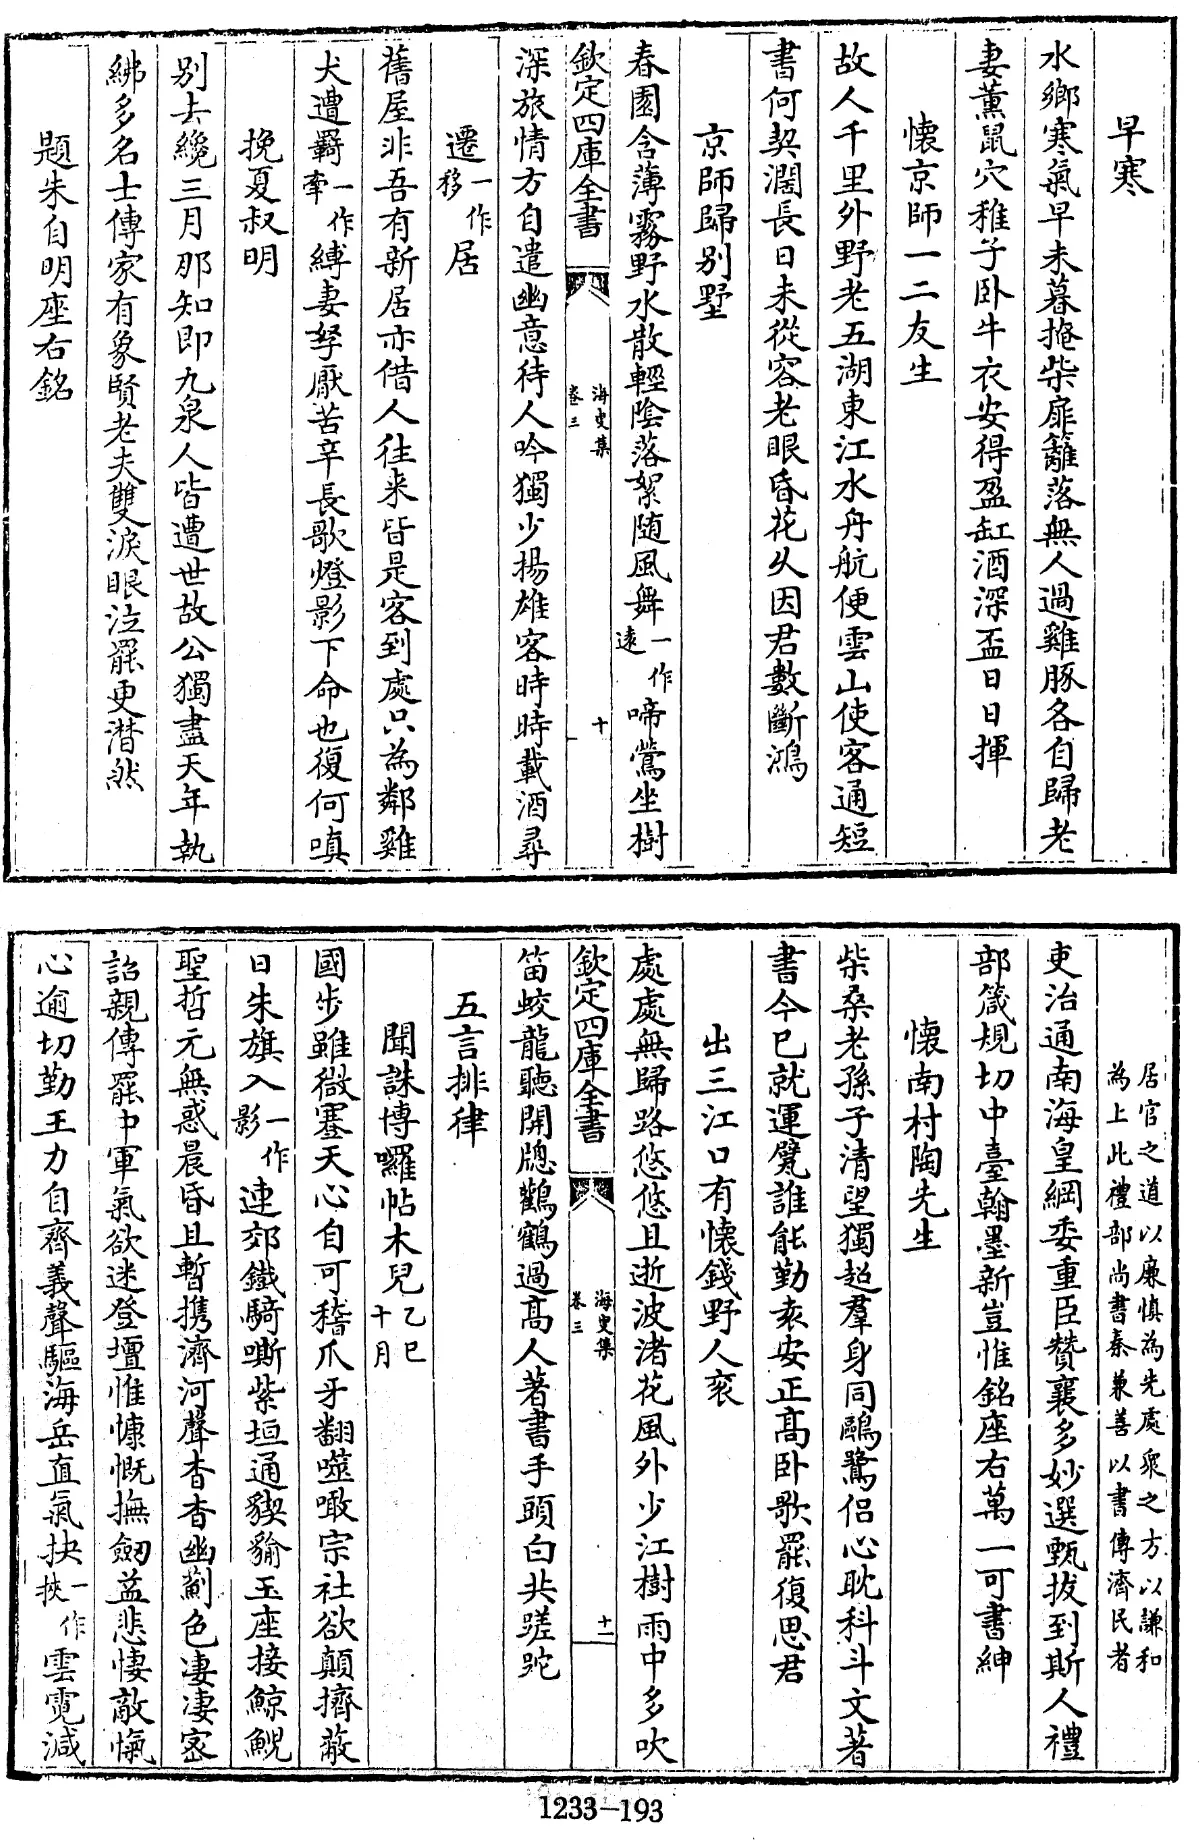 早寒
水鄉寒氣早未暮掩柴扉籬落無人過雞豚各自歸老
妻薰鼠穴稚子卧牛衣安得盈缸酒深盃日日揮
懷京師一二友生
故人千里外野老五湖東江水舟航便雲山使客通短
書何契濶長日未從容老眼昏花久因君數斷鴻
京師歸别墅
春園含薄霧野水散輕陰落絮随風舞一作遠啼鶯坐樹
欽定四庫全書
海叟集
卷三
十
深旅情方自遣幽意待人吟獨少揚雄客時時載酒尋
遷一作移居
舊屋非吾有新居亦借人往来皆是客到處只為鄰雞
犬遭羈一作牽縛妻孥厭苦辛長歌燈影下命也復何嗔
挽夏叔明
别去纔三月那知即九泉人皆遭世故公獨盡天年執
紼多名士傳家有象賢老夫雙淚眼泣罷更潸然
題朱自明座右銘
居官之道以廉慎為先處衆之方以謙和
為上此禮部尚書秦兼善以書傳濟民者
吏治通南海皇綱委重臣贊襄多妙選甄拔到斯人禮
部箴規切中臺翰墨新豈惟銘座右萬一可書紳
懷南村陶先生
柴桑老孫子清望獨超羣身同鷗鷺侣心耽科斗文著
書今已就運甓誰能勤袁安正高卧歌罷復思君
出三江口有懷錢野人衮
處處無歸路悠悠且逝波渚花風外少江樹雨中多吹
欽定四庫全書
海叟集
卷三
十一
笛蛟龍聽開牕鸛鶴過高人著書手頭白共蹉跎
五言排律
聞誅博囉帖木兒乙巳十月
國步雖微蹇天心自可稽爪牙翻噬噉宗社欲顛擠蔽
日朱旗入一作影連郊鐵騎嘶紫垣通猰貐玉座接鯨鯢
聖哲元無惑晨昏且暫携濟河聲杳杳幽薊色凄凄密
詔親傳罷中軍氣欲迷登壇惟慷慨撫劒益悲悽敵愾
心逾切勤王力自齊義聲驅海岳直氣抉一作挾雲霓減
1233-193